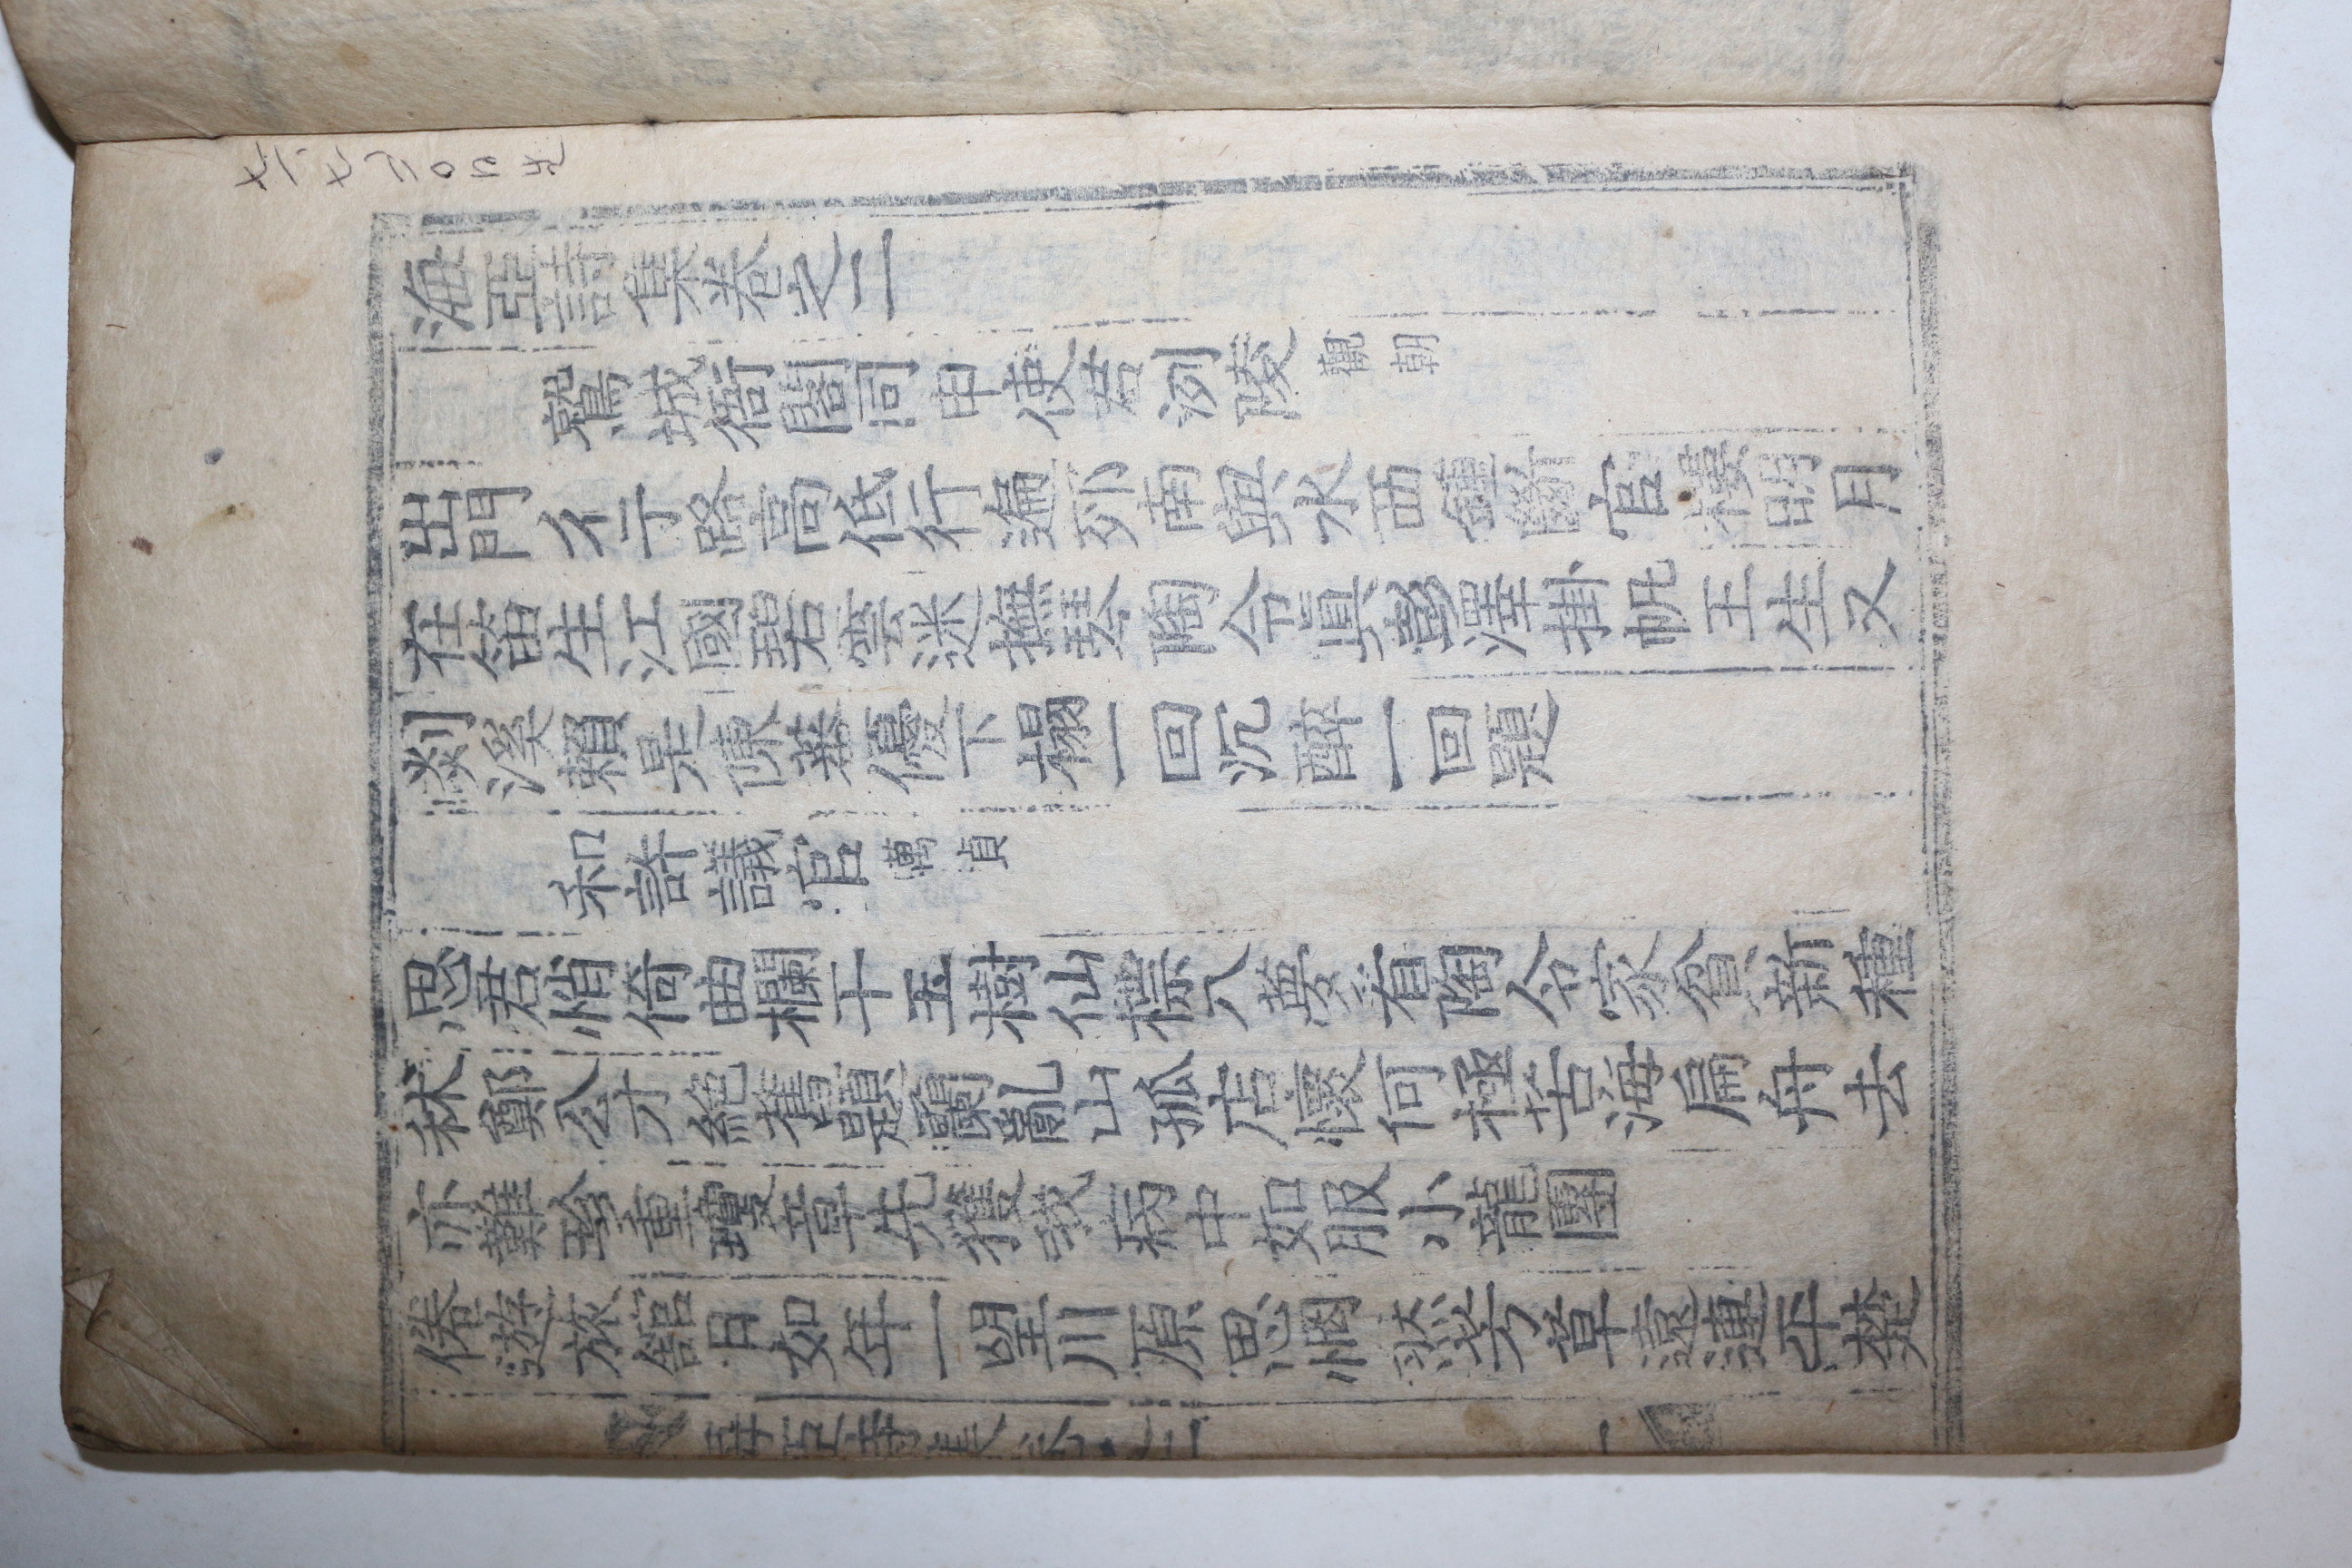 海亞詩集卷之二
鷲城衙閣同申使君洌陵觀朝
出門彳亍路高低行遍邜南與水西鍾斷官樓明月
在笛生江國碧雲迷撫琴陶令眞彭澤掛帆王生又
剡溪賴是陳蕃優下榻一回沉醉一回題
和許議官萬貞
思君悄倚曲欄干玉樹仙標入夢看陶令家貧新種
秫鄭公才絶舊題蘭亂山孤店懷何極苦海扁舟去
亦難珍重瓊章先獲我病中如服小龍團
倦遊旅舘日如年一望川原思惘然芳草遠連平楚
海亞詩集卷之二 一